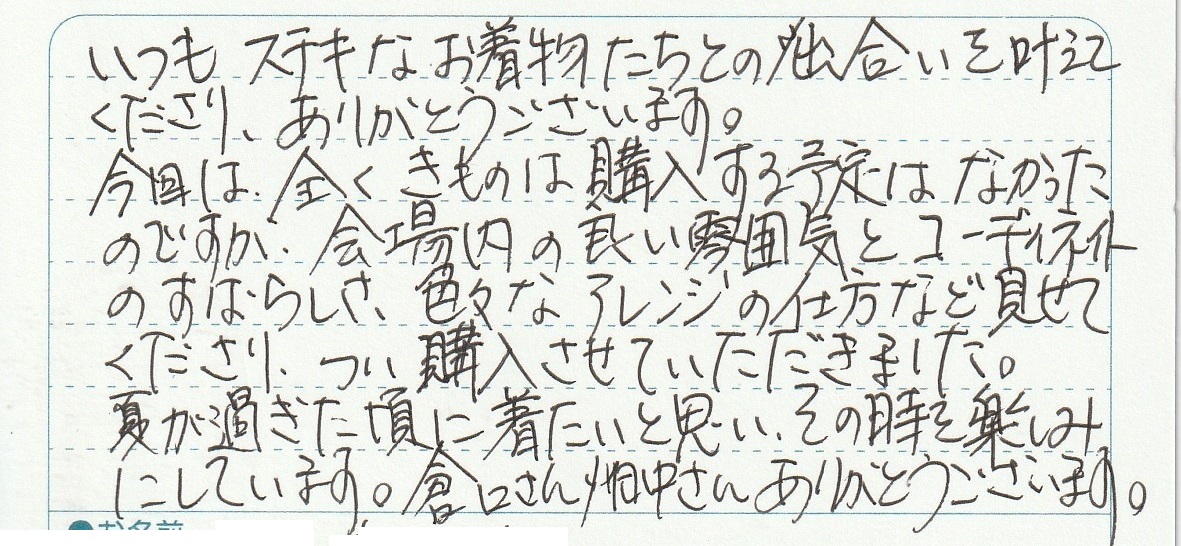 いつもステキなお着物たちとの出合いを叶えて
くださり、ありがとうございます。
今回は、全くきものは購入する予定はなかった
のですが、会場内の良い雰囲気とコーディネイト
のすばらしさ、色々なアレンジの仕方など見せて
くださり、つい購入させていただきました。
夏が過ぎた頃に着たいと思い、その時を楽しみ
にしています。倉口さん畑中さんありがとうございます。
●お名前